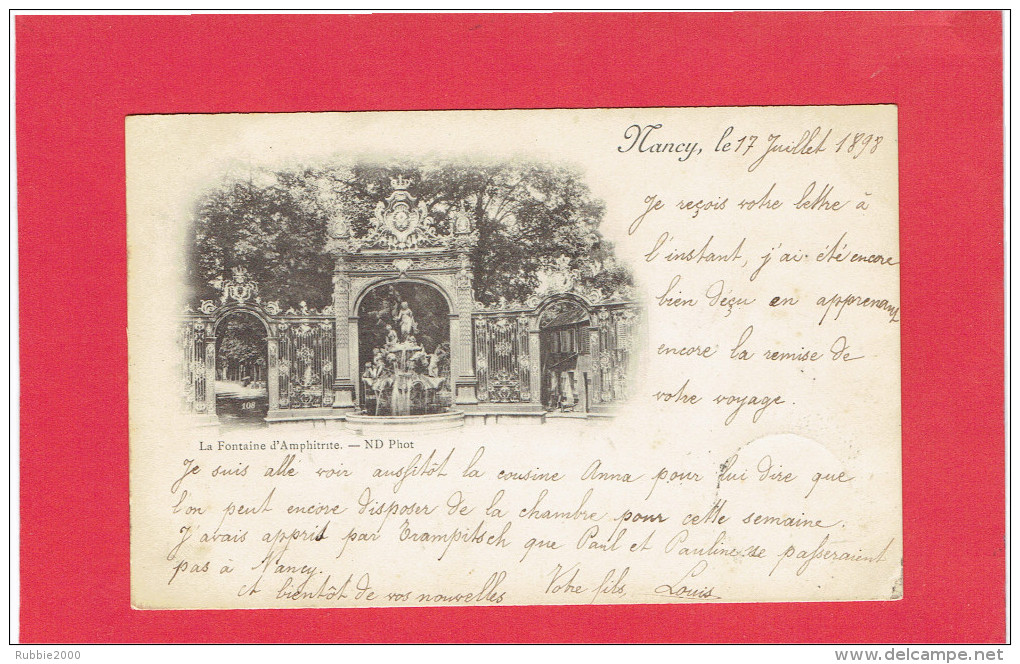 Nancy, le 17 Juillet 1898
Je reçois votre lettre à
l'instant, j'ai été encore
bien déçu en apprenant
encore la remise de
votre voyage.
108
La Fontaine d'Amphitrite. — ND Phot
Je suis allé voir aussitôt la cousine Anna pour lui dire que
l'on peut encore disposer de la chambre pour cette semaine.
J'avais appris par Trampitsch que Paul et Pauline ne passeraient
pas à Nancy.
et bientôt de vos nouvelles Votre fils, Louis
Rubbie2000
www.delcampe.net